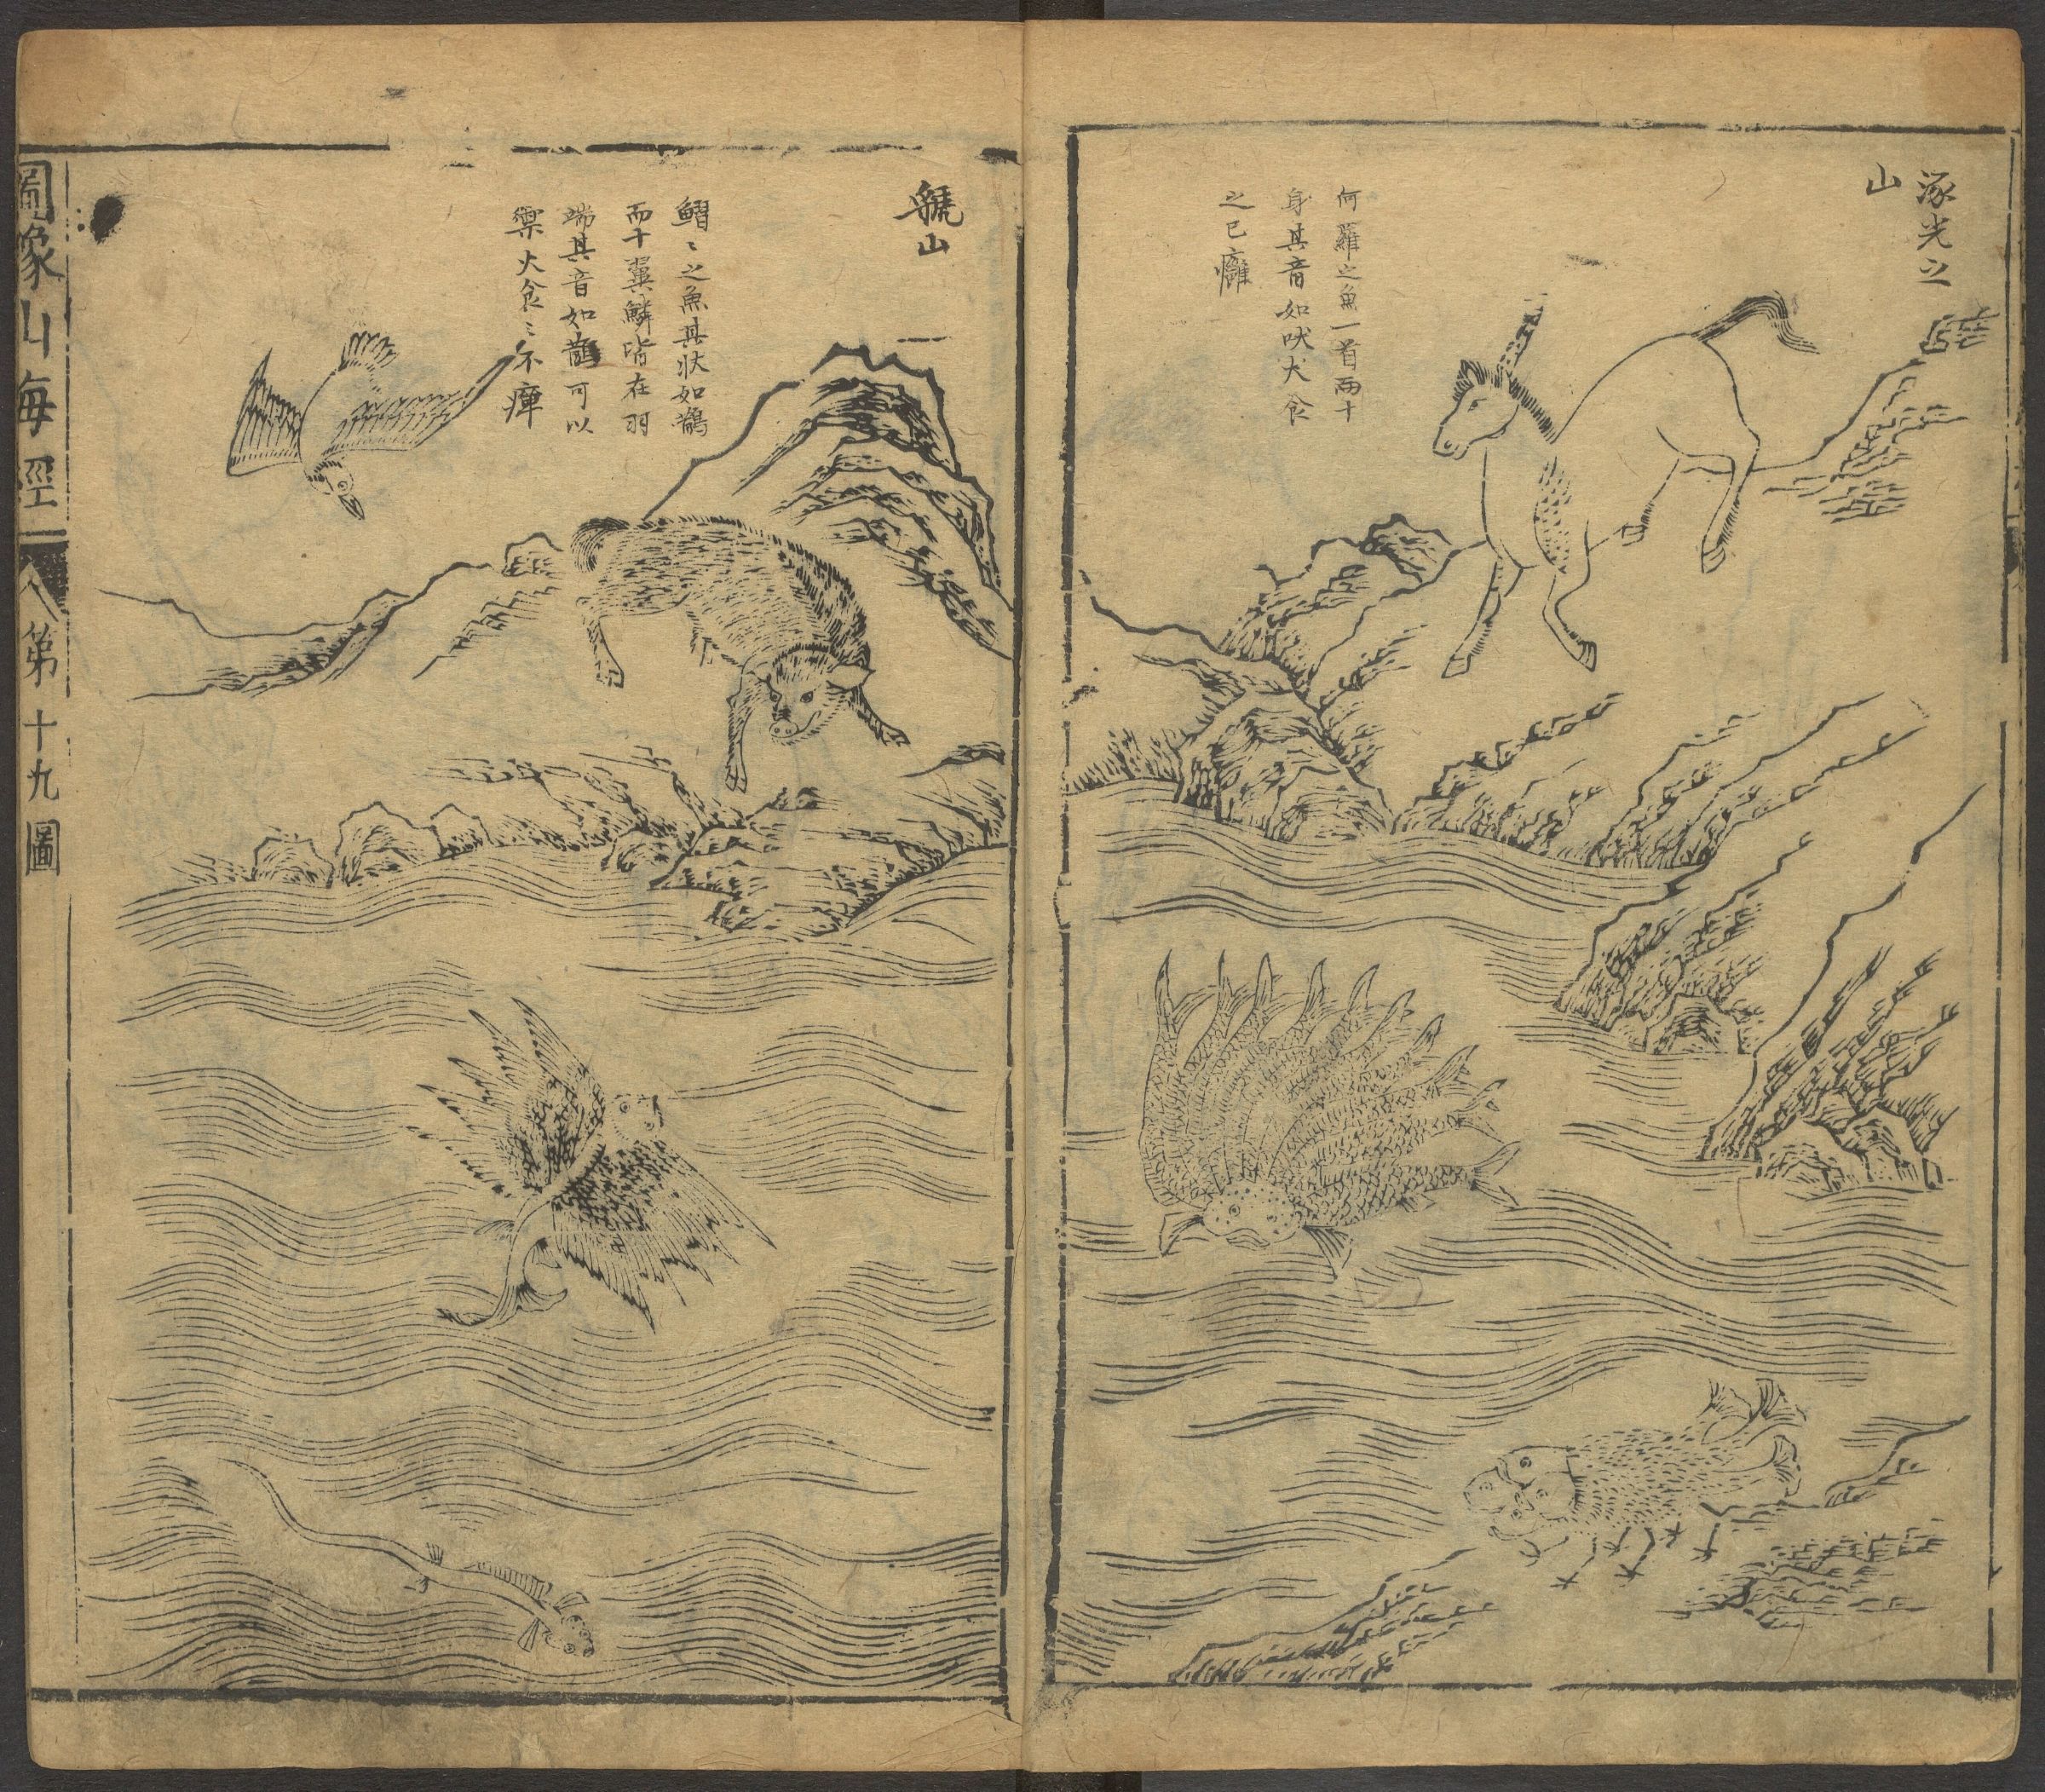 涿光之
山
何羅之魚一首兩十
身其音如吠犬食
之已癰
虢山
鰼〻之魚其狀如鵲
而十翼鱗皆在羽
端其音如鵲可以
禦火食〻不癉
圖像山海經一
八第十九圖